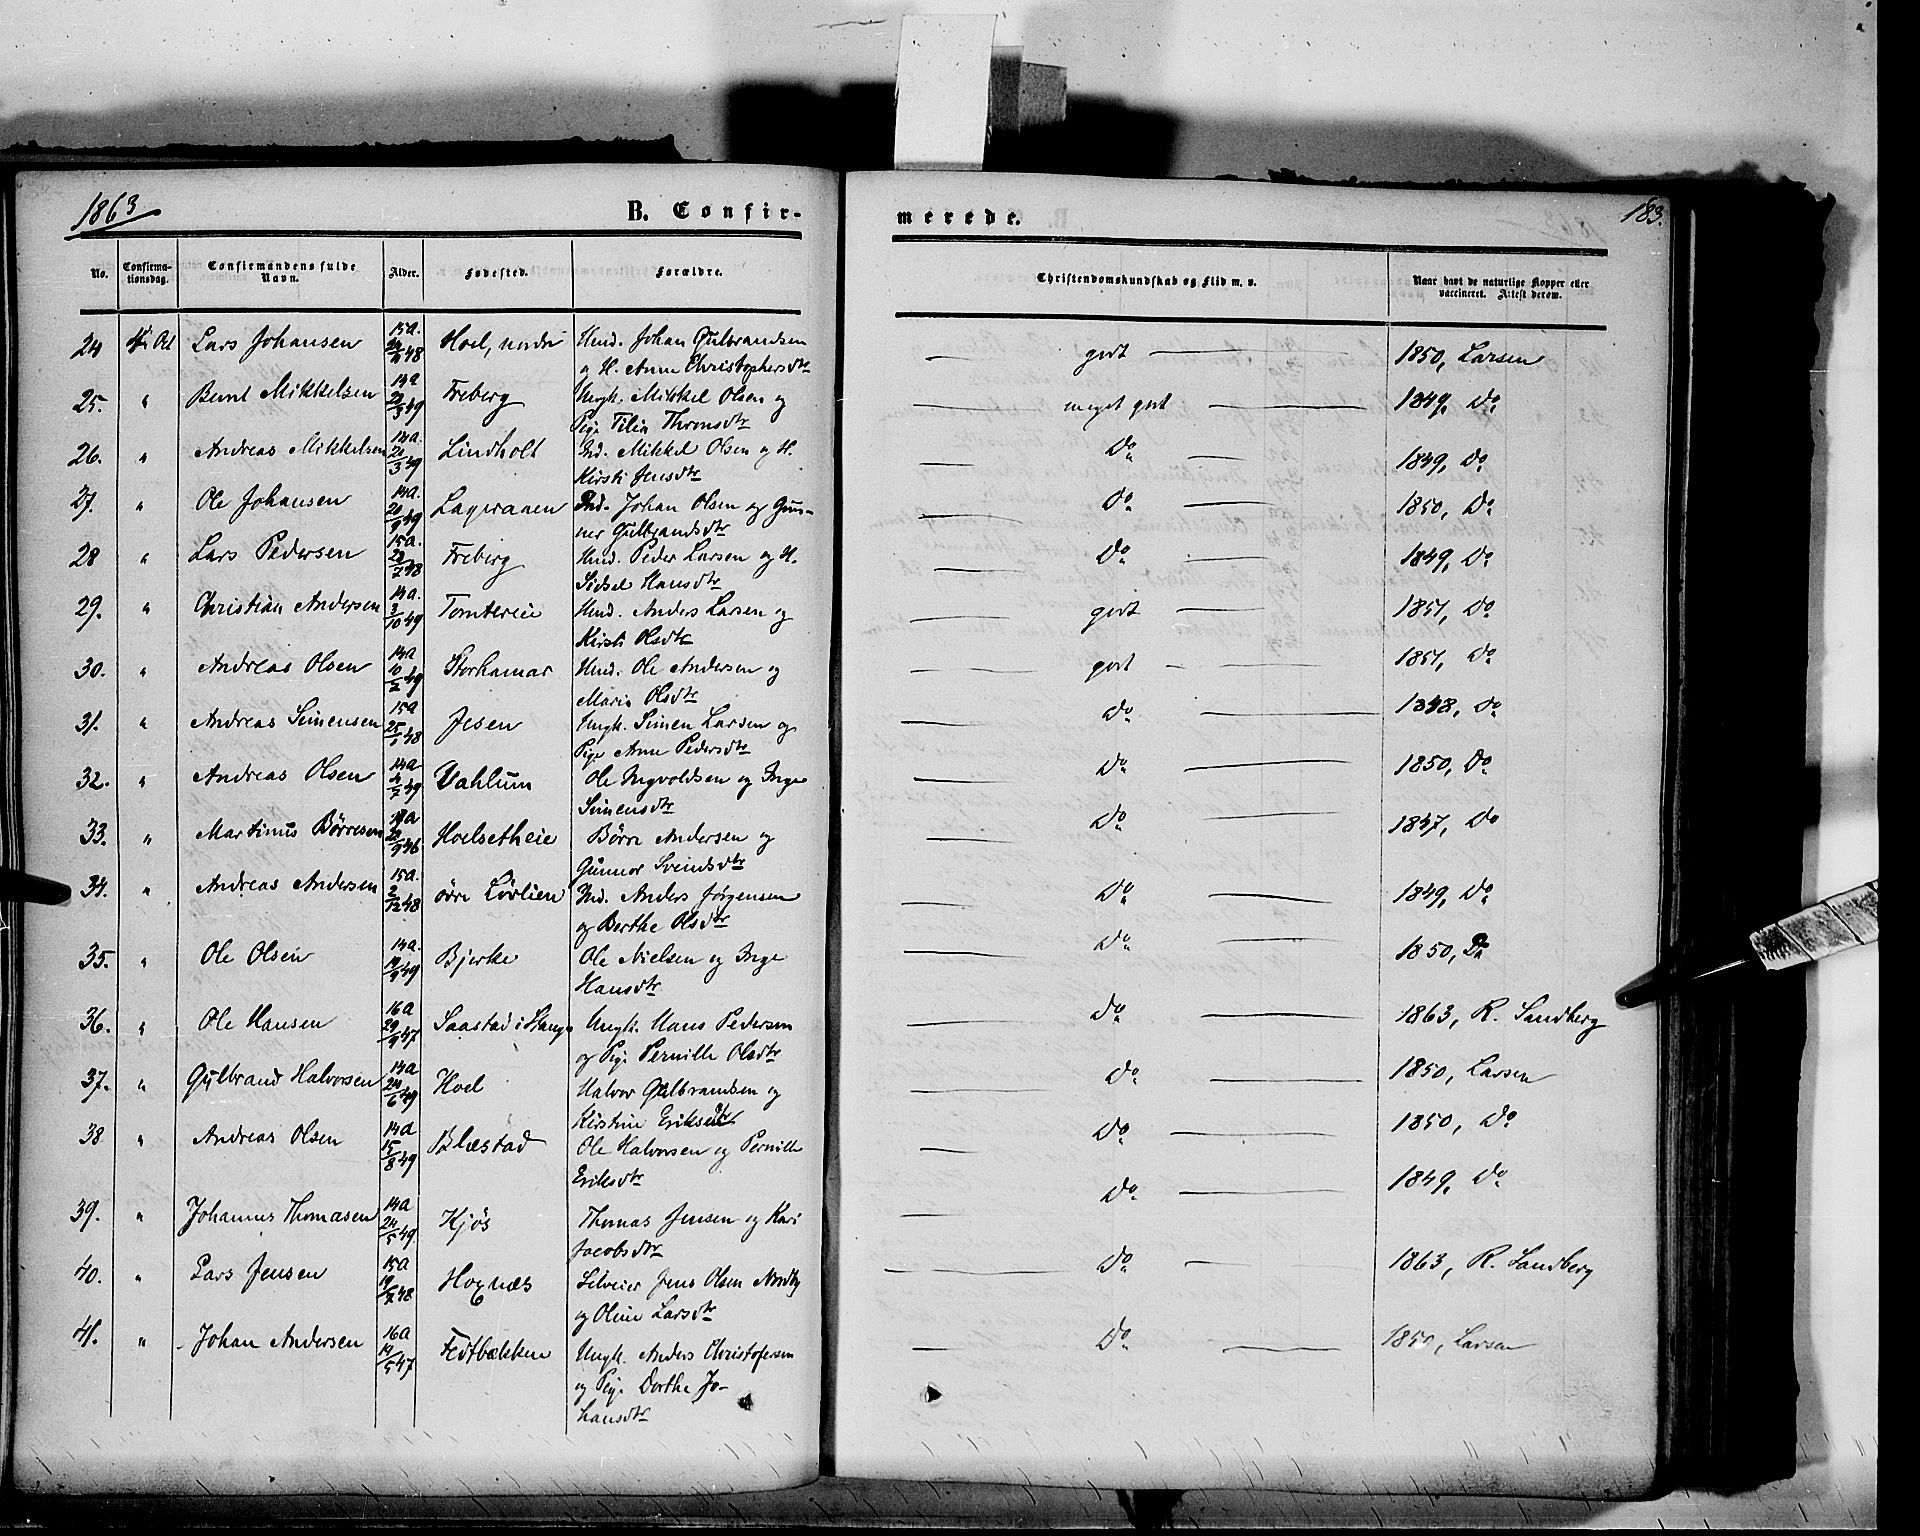 1863
B. Confir-
merede.
183.
No.
Confirma-
tionsdag.
Confirmandens fulde
Navn.
Alder.
Fødested.
Forældre.
Christendomskundskab og Flid m. v.
Naar havt de naturlige Kopper eller
vaccineret. Attest derom.
24 Oct Lars Johansen 15a. 48 Hoel, nedre Huusmd. Johan Gulbrandsen godt 1850, Larsen
og H. Anne Christophersdtr
25. " Bernt Mikkelsen 14a 3/49 Freberg Ungk. Mikkel Olsen og meget godt 1849, Do
Pige Thronsdtr
26. " Andreas Mikkelsen 14a. 3/49 Lindholt Ind. Mikkel Olsen og H. Do 1849, Do
Kirsti Jensdtr
27. " Ole Johansen 14a. 20/9 49 Lageraaen Ind. Johan Olsen og Gun- Do 1850, Do
ner Gulbrandsdtr
28 " Lars Pedersen 15a. 7/48 Freberg Peder Larsen og H. Do 1849, Do
Sidsel Hansdtr
29. " Christian Andersen 14a. 3/10 49 Tomtereie Anders Larsen og godt 1851, Do
Kirsti Olsdtr
30. " Andreas Olsen 14a 49 Storhamar Ole Andersen og godt 1851, Do
Marie Olsdtr
31. " Andreas Simensen 15a 25/1 48 Jesen Ungk. Simen Larsen og Do 1848, Do
Pige Anne Pedersdtr
32. " Andreas Olsen 14a 4/7 49 Vahlum Ole Ingvoldsen og Inge Do 1850, Do
Simensdtr
33. " Martinus Børresen 9/46 Hoelsetheie Børre Andersen og Do 1847, Do
Gunnor Sveindsdtr
34. " Andreas Andersen 15a. 2/12 48 øvre Løvlien Ind. Anders Jørgensen Do 1849, Do
og Berthe Olsdtr
35. " Ole Olsen 14a. 19/9 49 Bjerke Ole Nielsen og Inge Do 1850, Do
Hansdtr
36. " Ole Hansen 16a 29/9 47 Saastad i Stange Ungk. Hans Pedersen Do 1863, R. Sandberg
og Pige Pernille Olsdtr
37. " Gulbrand Halvorsen 14a 24/6 49 Hoel Halvor Gulbrandsen og Do 1850, Larsen
Kirstine Eriksdtr
38 " Andreas Olsen 14a 15/8 49 Blæstad Ole Halvorsen og Pernille Do 1850, Do
Eriksdtr
39. " Johannes Thomasen 14a 24/5 49. Kjøs Thomas Jensen og Kari Do 1849, Do
Jacobsdtr
40. " Lars Jensen 15a 19/7 48 Hognæs Selveier Jens Olsen Nordby Do 1863, R. Sandberg
og Oline Larsdtr
41. " Johan Andersen 16a 19/5 47 Fedtbækken Ungk. Anders Christofersen Do 1850, Larsen
og Pige Dorthe Jo-
hansdtr